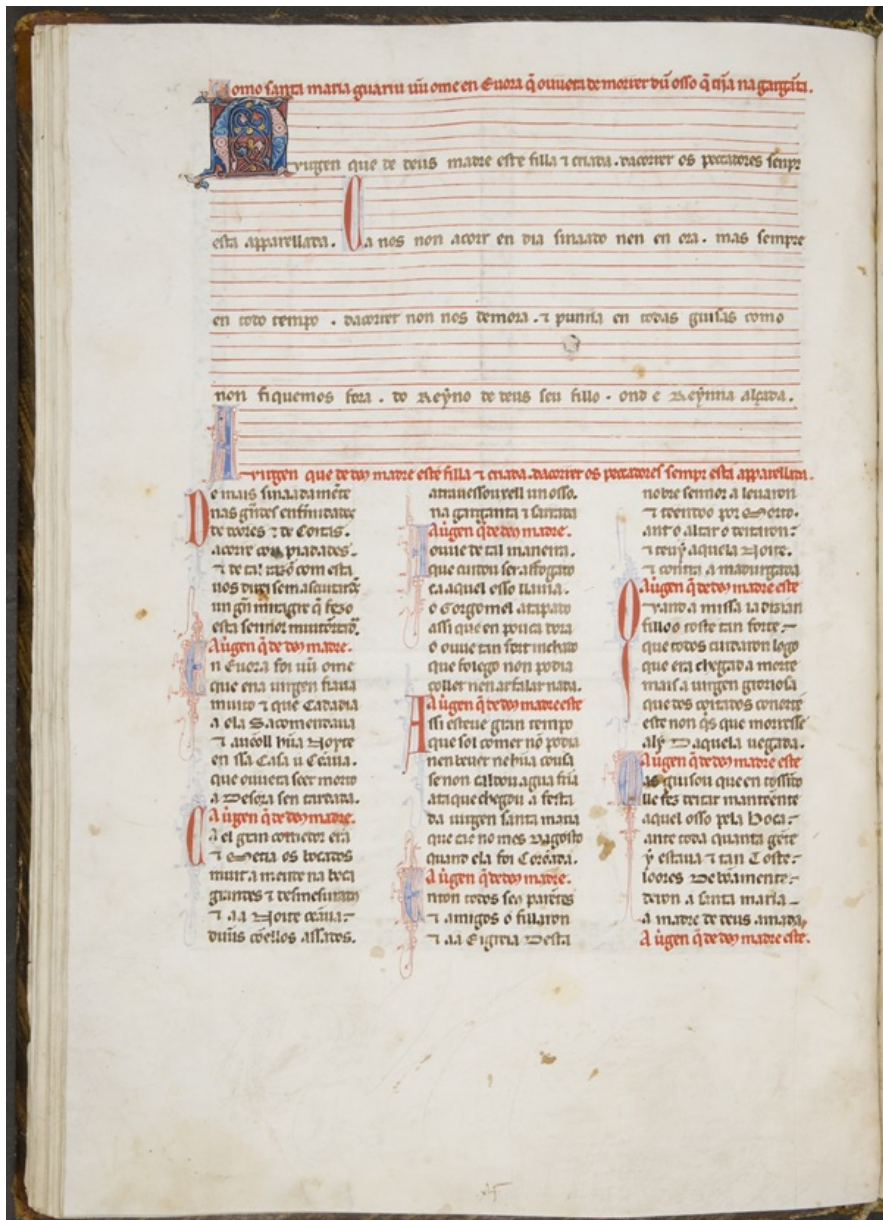 Como santa maria guariu ũu ome en Euora q̃ ouuera de morrer dũ osso q̃ tĩja na gargãta.
A Uirgen que de deus madre este filla ⁊ criada. dacorrer os peccadores senpr
esta apparellada. Ca nos non acorr en dia sinaado nen en ora. mas sempre
en todo tempo. dacorrer non nos demora. ⁊ punna en todas guisas como
non fiquemos fora. do Reyno de deus seu fillo. ond e Reynna alçada.
A uirgen que de d's madre este filla ⁊ criada. dacorrer os peccadores sempr esta apparellada.
De mais sinaadamẽte
nas grãdes enfirmidades
de doores ⁊ de Coitas.
acorre con piadades.
⁊ de tal razõ com esta
uos direi se mascuitardes
un grã miragre q̃ fezo
esta sennor
A uirgen q̃ de d's madre.
En Euora foi ũu ome
que ena uirgen fiaua
muito ⁊ que Cada dia
a ela Sacomendaua
⁊ auẽoll hũa Noyte
en ssa Casa u Cẽaua.
que ouuera seer morto
a Desora sen tardada.
A uirgen q̃ de d's madre.
Ca el gran comedor era
⁊ Metia os bocados
muit a meude na boca
grandes ⁊ desmesurados
⁊ aa Noite cẽaua
duũs cõellos assados.
atrauessouxell un osso.
na garganta ⁊ sarrada
A uirgen q̃ de d's madre.
E ouue de tal maneira.
que cuidou ser affogado
ca aquel osso llauia.
o Gorgomel atapado
assi que en pouca dora
o ouue tan fort inchado
que folego non podia
coller nen ar falar nada.
A uirgen q̃ de d's madre este
Assi esteue gran tempo
que sol comer nõ podia
nen beuer nehũa cousa
se non caldou agua fria
ata que chegou a festa
da uirgen santa maria
que cae no mes Dagosto
quand ela foi Corõada.
A uirgen q̃ de d's madre.
Enton todos seus parẽtes
⁊ amigos o fillaron
⁊ aa Eigreia Desta
nobre sennor a leuaron
⁊ teendoo por Morto.
ant o altar o deitaron
⁊ teuy aquela Noite.
⁊ contra a madurgada
A uirgen q̃ de d's madre este
Quando a missa ia dizian
filloo toste tan forte
que todos cuidaron logo
que era chegad a morte
mais a uirgen gloriosa
que dos coitados conorte
este non q̃s que morresse
aly Daquela uegada.
A uirgen q̃ de d's madre este
Mas guisou que en tossindo
lle fez deitar mantẽente
aquel osso pela Boca
ante toda quanta gẽte
y estaua ⁊ tan Toste
loores De bõamente
deron a santa maria
a madre de deus amada.
A uirgen q̃ de d's madre este.